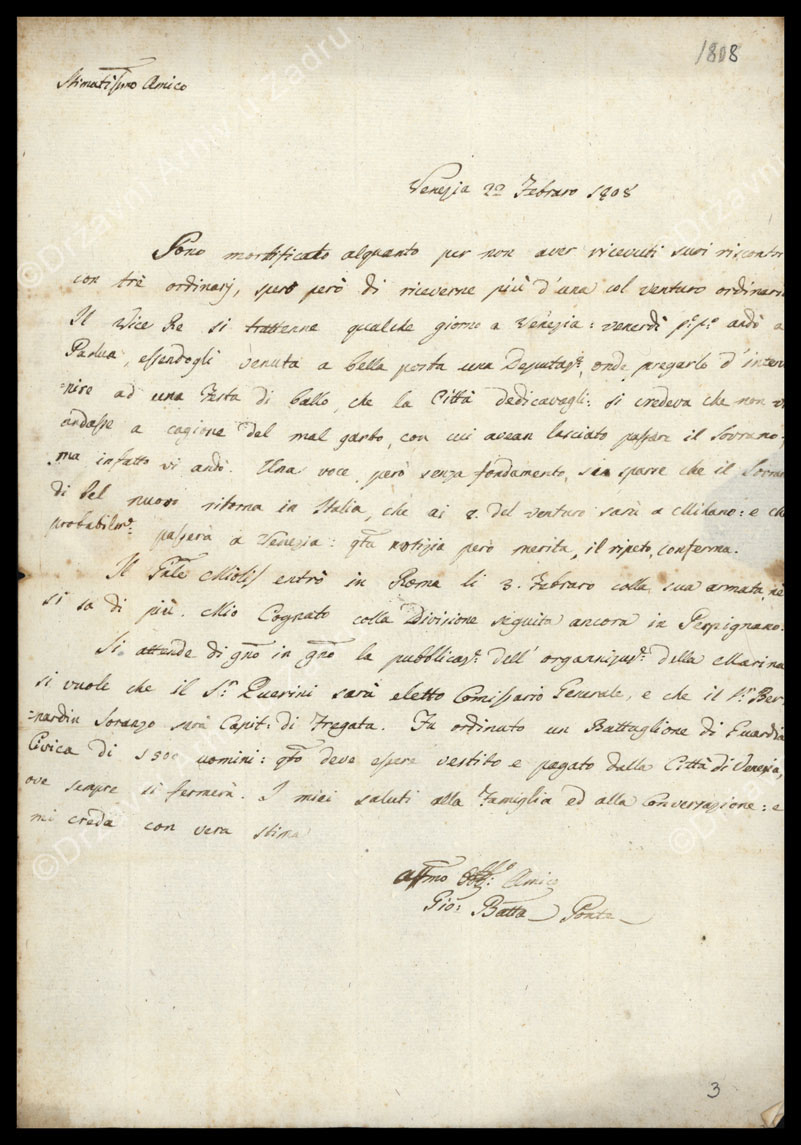 1808
Stimatissmo Amico
Venezia 22 Febraro 1808
Sono mortificato alquanto per non aver ricevuti suoi riscontr
con trè ordinarj, spero però di riceverne più d'una col venturo ordinari
Il Vice Re si trattenne qualche giorno a Venezia: venerdì p:º p:º andò a
Padua, essendogli venuta a bella posta una Deputaz:e, onde pregarlo d'inter
=nire ad una Festa di ballo, che la Città dedicavagli: si credeva che non vi
andasse a cagione del mal garbo, con cui avean lasciato passare il Sovrano:
ma infatto vi andò. Una voce però senza fondamento, si sparse che il Sovran
di bel nuovo ritorna in Italia, che ai 2. del venturo sarà a Milano: e che
probabilm:e passerà a Venezia: qta notizia però merita, il ripeto, conferma.
Il Gnle Miolis entrò in Roma li 3. Febraro colla sua armata, nè
si sa di più. Mio Cognato colla Divisione seguita ancora in Perpignano:
Si attende di gno in gno la pubblicaz:e dell' organnizaz:e della Marina
si vuole che il S:r Querini sarà eletto Comissario Generale, e che il S:r Ber-
=nardin Soranzo sarà Capit: di Fregata. Fu ordinato un Battaglione di Guardia
Civica di 1500 uomini: qto deve essere vestito e pagato dalla Città di Venezia,
ove sempre si fermerà. I miei saluti alla Famiglia ed alla Conversazione: e
mi creda con vera stima
Affmo Obb:o Amico
Gio: Batta Ponte
3
©Državni Arhiv u Zadru